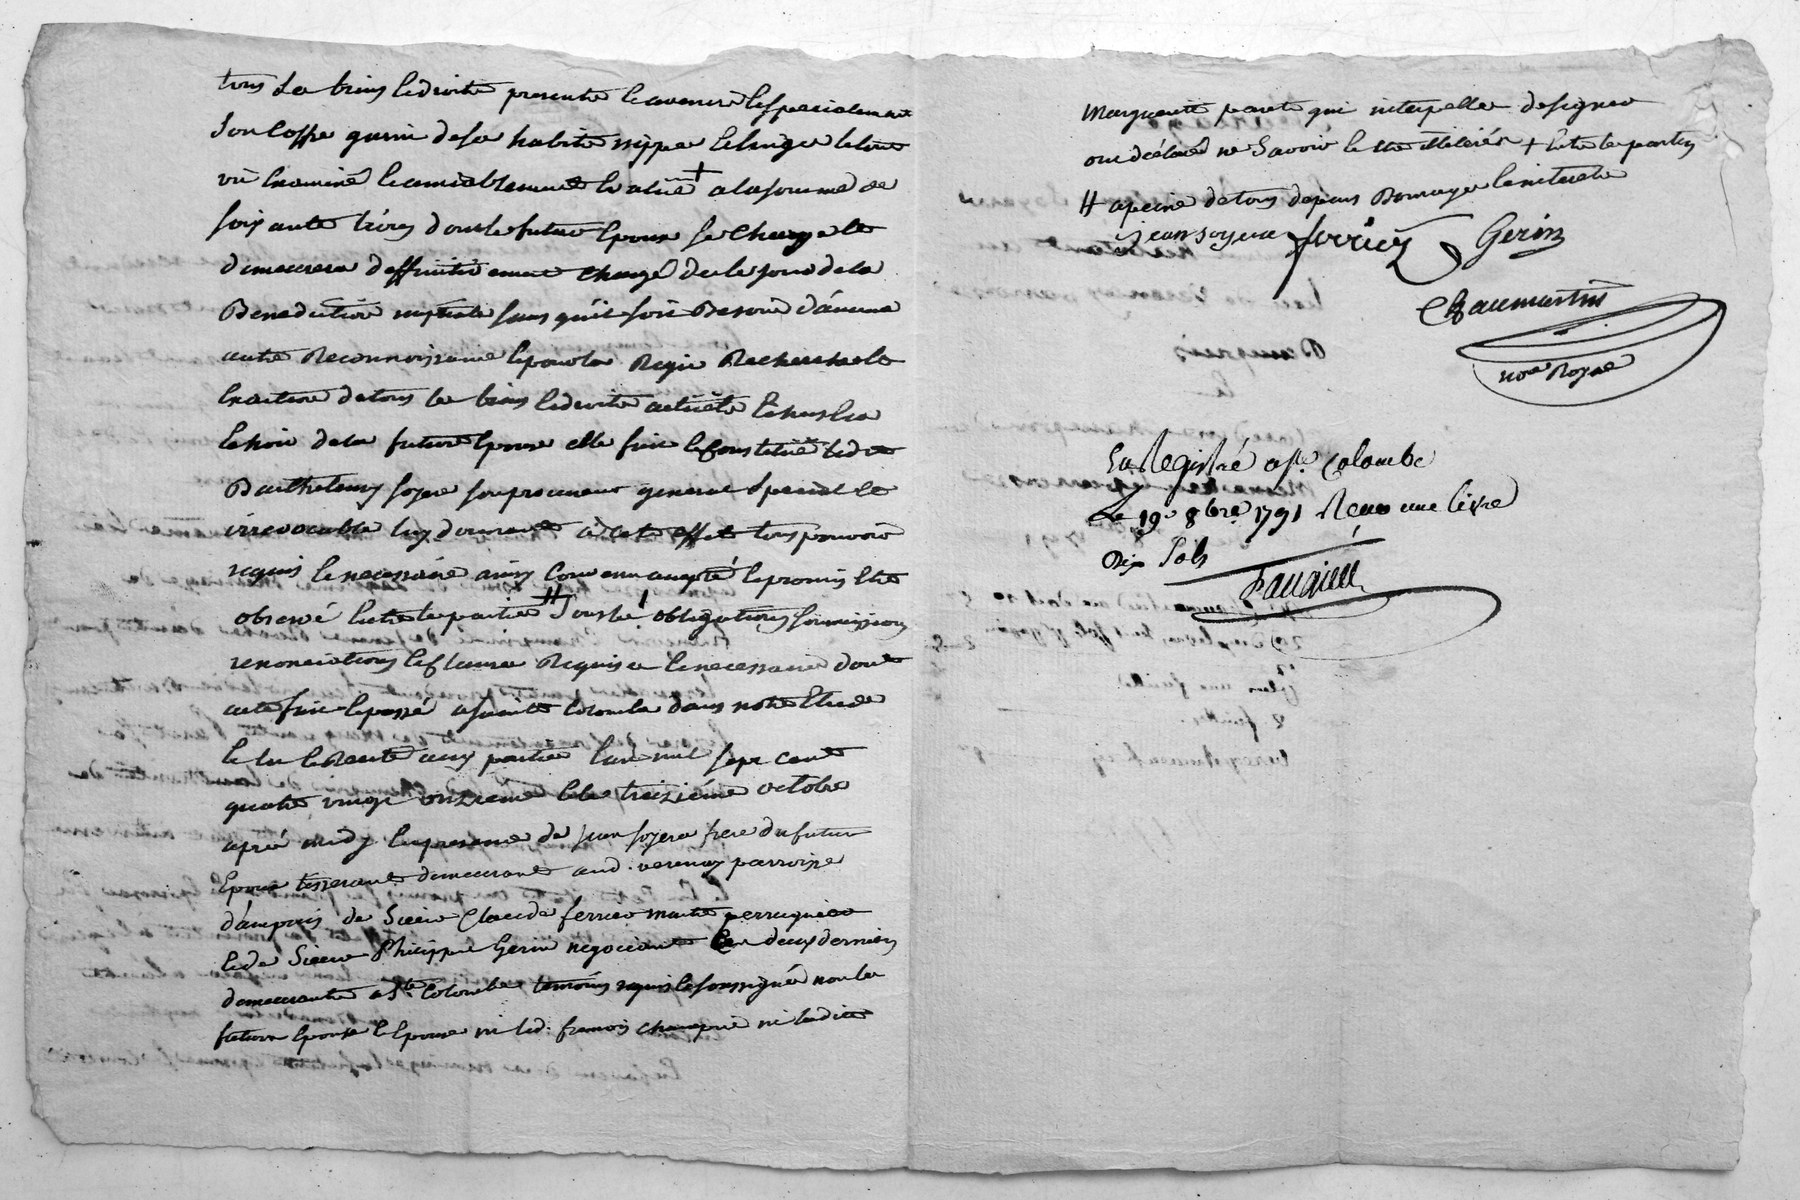 tous ses biens et droits presents et avenir et specialement
son coffre garni de ses habits nippes et linges le tout
vû examiné et amiablement evalué + a la somme de
soixante livres dont le futur epoux se charge et
demeurera deffinitivement chargé des le jour de la
Benediction nuptiale sans qu'il soit Besoin d'aucune
autre Reconnoissance et pour la Regie Recherche et
exaction de tous les biens et droits actuels echus et a
echoir de la future epouse elle fait et constitue ledit
Barthelemy soyere son procureur general special et
irrevocable luy donnant à cet effet tous pouvoirs
requis et necessaire ainsy convenu accepté et promis etre
observé entre les parties # sous les obligations soumissions
renonciations et clauses Requises et necessaires dont
acte fait et passé a sainte Colombe dans notre Etude
et lu et Recité aux parties l'an mil sept cent
quatre vingt onzieme et le treizième octobre
après midy en presence de jean soyere frere du futur
epoux tisserant demeurant aud. verenay parroisse
d'ampuis de Sieur Claude ferrier maitre perruquier
et de Sieur Philippe Gerin negociant les deux derniers
demeurants a Ste Colombe temoins requis et soussignés non les
futurs epoux et epouse ni led. francois champrié ni ladite
Marguerite qui interpellés de signer
ont déclaré ne savoir + entre les parties
# a peine de tous depens Domages et interets
jean soyere ferrier Gerin
Chaumartin
nore Royal
Enregistré a Ste Colombe
Le 19e 8bre 1791 Reçu une livre
Dix sols